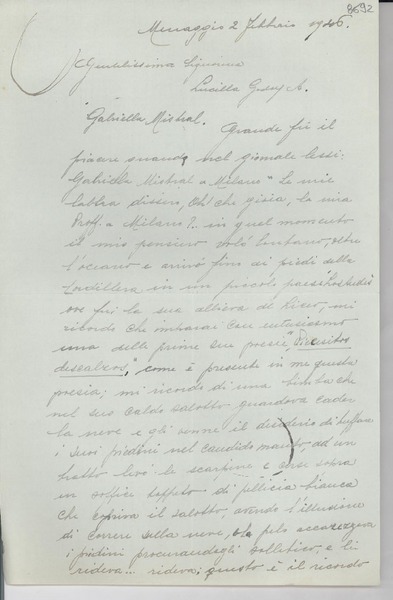 8692
Menaggio 2 Febbraio 1946.
Gentilissima Signorina
Lucilla Godoy A.
"Gabriella Mistral. Grande fù il
piacere quando nel giornale lessi:
Gabriela Mistral a Milano" Le mie
labbra dissero, Oh! che gioia, la mia
Proff. a Milano?.. in quel momento
il mio pensiero volò lontano, oltre
l'oceano e arrivò fino ai piedi della
Cordillera in un piccolo paese Los Andes
ove fui la sua allieva al Liceo, mi
ricordo che imparai con entusiasmo
una delle prime sue poesie, "Piecesitos
descalzos," come è presente in me questa
poesia; mi ricordo di una bimba che
nel suo caldo salotto guardava cader
la neve e gli venne il desiderio di tuffare
i suoi piedini nel candido manto, ad un
tratto levò le scarpine e corse sopra
un soffice tappeto di pelliccia bianca
che copriva il salotto, avendo l'illusione
di correre sulla neve, il pelo accarezzava
i piedini procurandogli solletico, e lì
rideva... rideva; questo è il ricordo